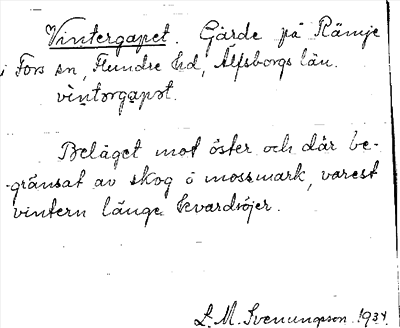 Vintergapet. Gärde på Rämje
i Fors sn, Flundre hd, Älfsborgs län.
vintərgapət.
Beläget mot öster och där be-
gränsat av skog o mossmark, varest
vintern länge kvardröjer.
L. M. Svenungsson 1934.